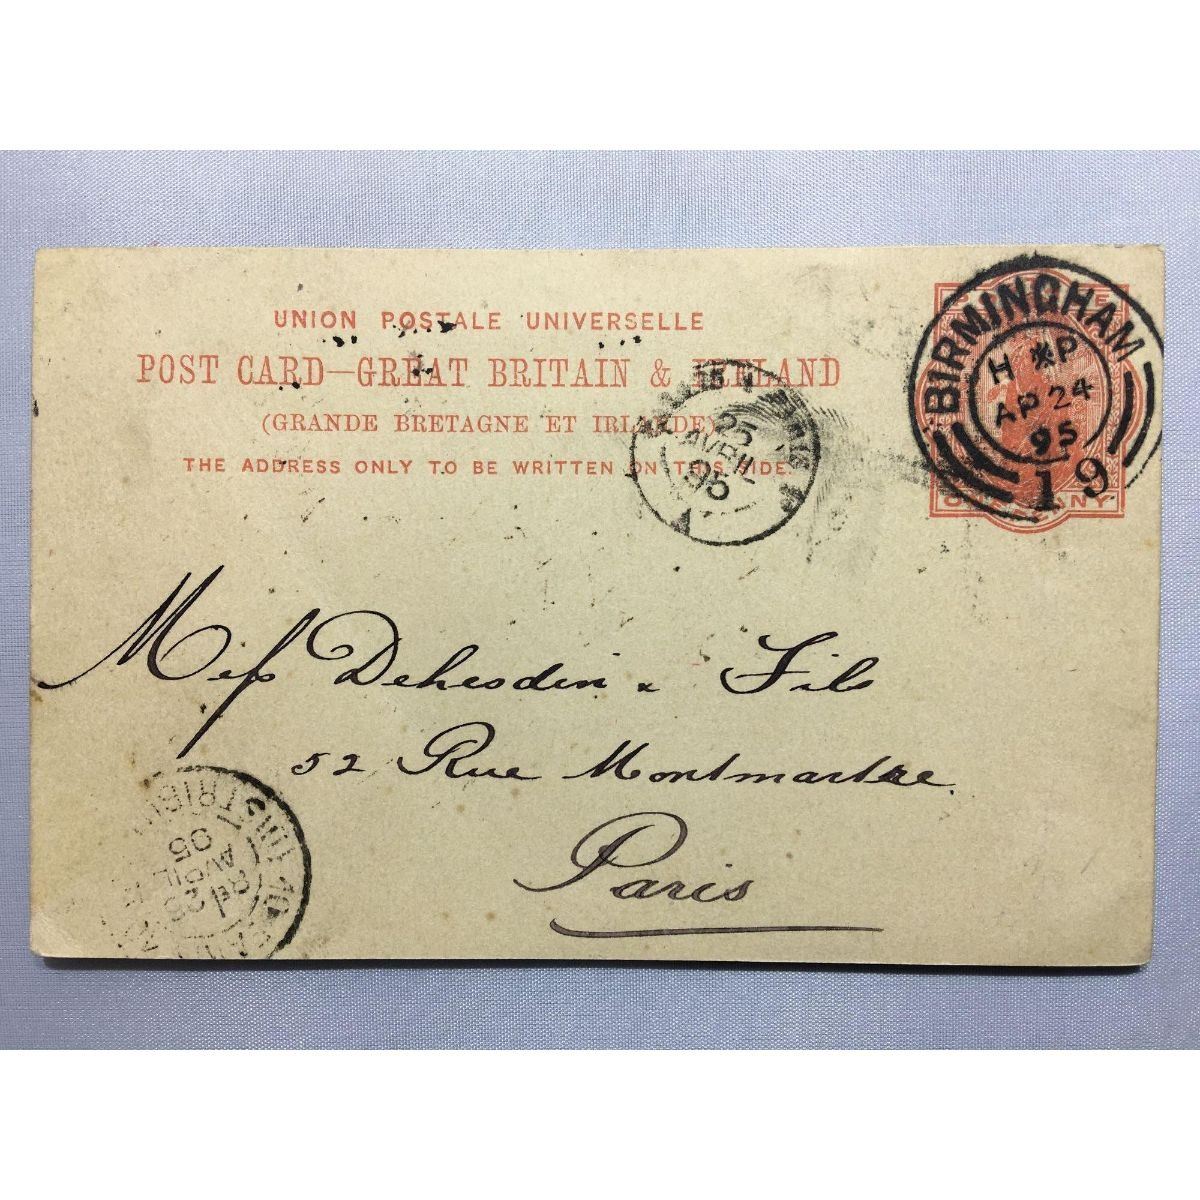 UNION POSTALE UNIVERSELLE
POST CARD—GREAT BRITAIN & IRELAND
(GRANDE BRETAGNE ET IRLANDE)
THE ADDRESS ONLY TO BE WRITTEN ON THIS SIDE.
BIRMINGHAM
H P
AP 24
95
19
ONE PENNY
25
AVRIL
95
Mess Dehesdin & Fils
52 Rue Montmartre
Paris
AVRIL
95